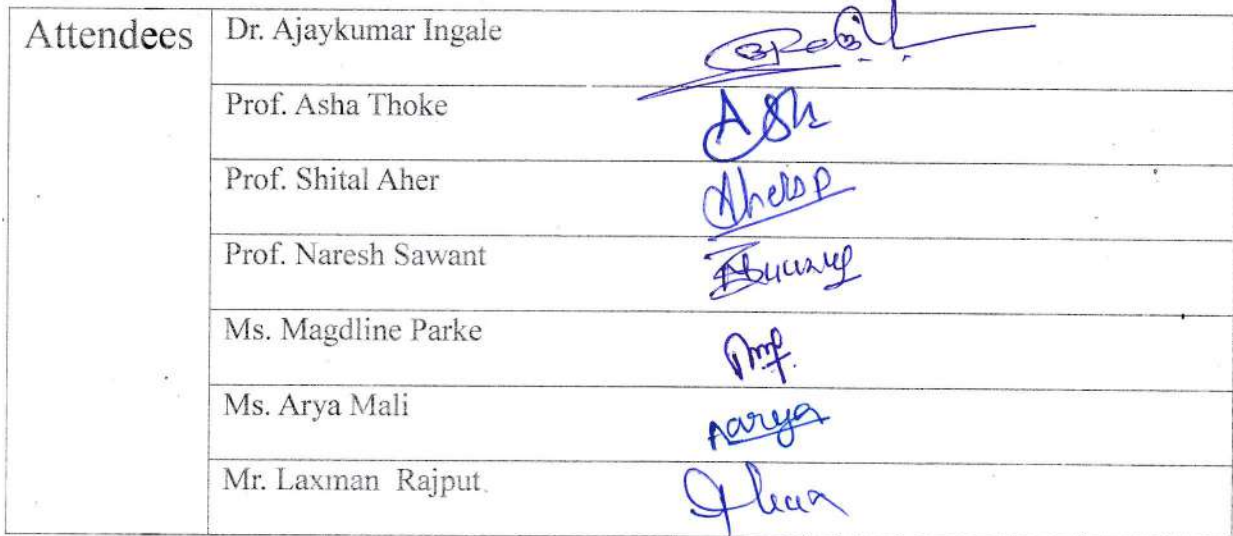 Attendees
Dr. Ajaykumar Ingale
Prof. Asha Thoke
Prof. Shital Aher
Aher S P
Prof. Naresh Sawant
Ms. Magdline Parke
Ms. Arya Mali
Aarya
Mr. Laxman Rajput.